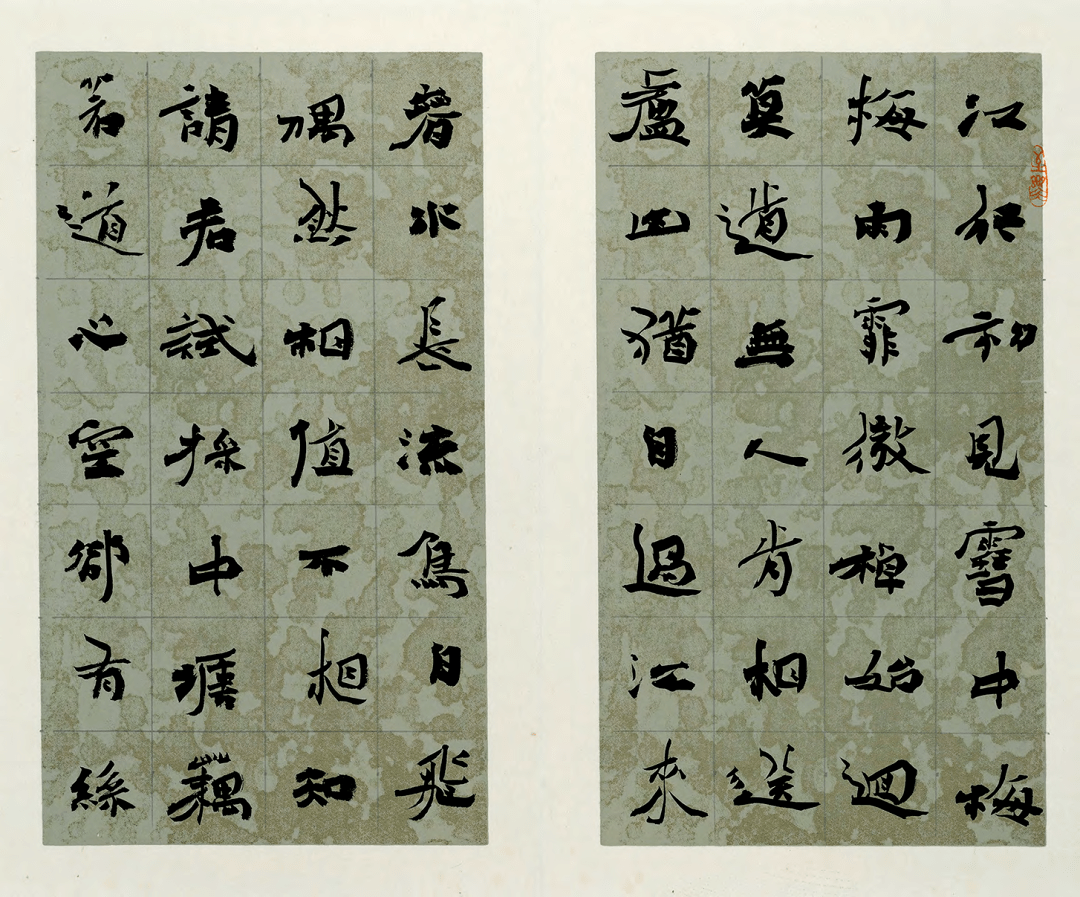 江行初見雪中梅
梅雨霏微棹始迴
莫道無人肯相送
廬山猶自過江來
春水長流鳥自飛
偶然相值不相知
請君試採中塘藕
若道心空卻有絲